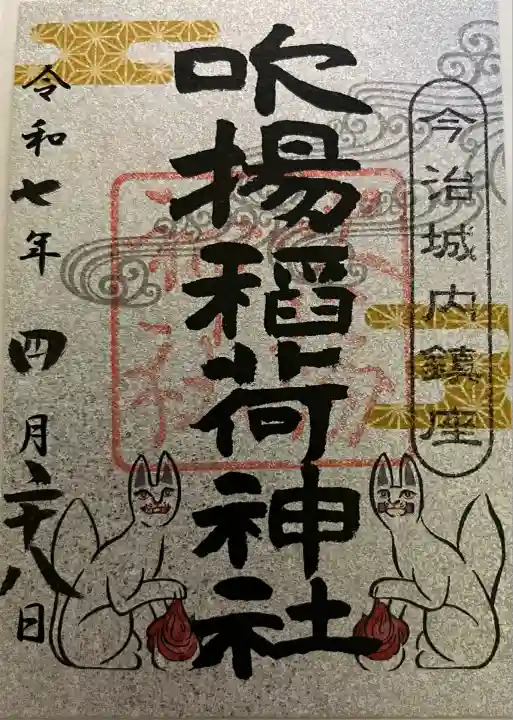 今治城内鎮座
吹揚稲荷神社
令和七年 四月二十八日